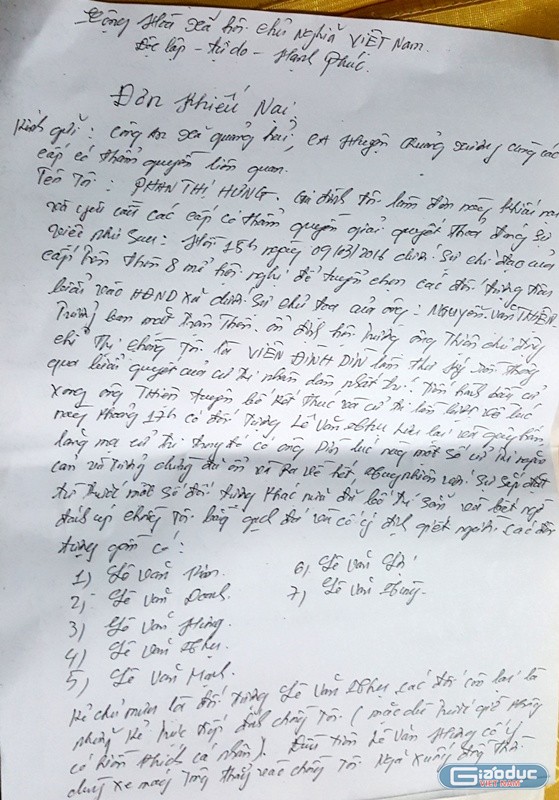 Cộng Hoà xã hội chủ Nghĩa VIỆT Nam.
Độc lập - tự do - Hạnh phúc.
Đơn Khiếu Nại
Kính gửi: Công an xã quảng hải, CA Huyện Quảng xương, cùng các
cấp có thẩm quyền liên quan.
Tên Tôi: PHAN THỊ HỪNG. Gia đình tôi làm đơn này khiếu nại
và yêu cầu các cấp có thẩm quyền giải quyết theo đúng sự
việc như sau: Hồi 15h ngày 09/03/2016 dưới sự chỉ đạo của
cấp trên thôn 8 mở hội nghị để tuyển chọn các đối tượng tham
vào HĐND xã dưới sự chủ tọa của ông: NGUYỄN. VĂN THIỆN
Trưởng ban mặt trận Thôn. ổn định hội trường ông Thiện chỉ
Thị chồng Tôi là VIÊN ĐÌNH DIN làm thư ký
qua quyết của cử tri nhân dân nhất trí tiến hành bầu cử
xong ông Thiện tuyên bố kết thúc và cử tri lần lượt về lúc
này khoảng 17h có đối tượng Lê Văn Như lại và
cử tri trong đó có ông Din lúc này một số cử tri ngăn
can và tưởng chừng đã ổn và ra về hết, nhưng sự sắp đặt
từ trước một số đối tượng khác nữa đã bố trí sẵn và bất ngờ
chồng Tôi bằng gạch đá và có ý định giết người. Các đối
tượng gồm có:
1) Lê văn
2) Lê văn Doanh.
3) Lê văn Hùng.
4) Lê văn Như.
5) Lê văn Mạnh.
6) Lê văn
7) Lê văn
Kẻ chủ mưu là đối tượng Lê Văn Như các đối còn lại là
những kẻ trực tiếp đánh chồng Tôi. (mặc dù trước giờ không
có hiềm khích cá nhân). Đầu tiên Lê Văn Hùng cố ý
dùng xe máy tông thẳng vào chồng Tôi Ngã xuống
Giáoduc
VIỆT NAM